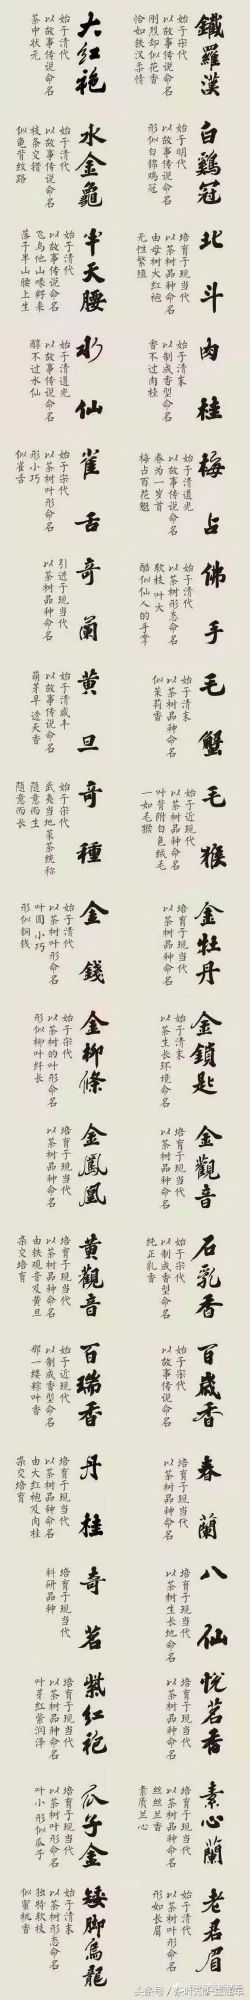 鐵羅漢
始于宋代
以故事传说命名
刚烈却似花香
恰如铁汉柔情
大红袍
始于清代
以故事传说命名
茶中状元
白鷄冠
始于明代
以故事传说命名
形似白锦鸡冠
水金龜
始于清代
以故事传说命名
枝条交错
似龟背纹路
北斗
培育于现当代
以茶树品种命名
由母树大红袍
无性繁殖
半天腰
始于清代
以故事传说命名
飞鸟他山啄籽枭
落于半山腰上生
肉桂
始于清末
以制成香型命名
香不过肉桂
水仙
始于清道光
以故事传说命名
醇不过水仙
梅占
始于清道光
以故事传说命名
春为一岁首
梅占百花魁
雀舌
始于宋代
以茶树叶形命名
形小巧
似雀舌
佛手
始于现当代
以茶树形态命名
软枝叶大
酷似仙人的手掌
奇蘭
引进于现当代
以茶树品种命名
毛蟹
始于清末
以茶树品种命名
似茉莉香
黄旦
始于清咸丰
以故事传说命名
萌芽早 透天香
毛猴
始于近现代
以茶树品种命名
叶背附白色绒毛
一如毛猴
奇種
始于宋代
武夷当地菜茶统称
随意而生
随意而长
金牡丹
培育于现当代
以茶树品种命名
金錢
始于清代
以茶树叶形命名
叶圆 小巧
形似铜钱
金鎖匙
始于清末
以茶生长环境命名
金柳條
始于宋代
以茶树的叶形命名
形似柳叶纤长
金觀音
培育于现当代
以茶树品种命名
金鳳凰
培育于现当代
以茶树品种命名
石乳香
始于宋代
以制成香型命名
纯正乳香
黄觀音
培育于现当代
以茶树品种命名
由铁观音及黄旦
杂交培育
百歲香
始于宋代
以故事传说命名
百瑞香
始于近现代
以制成香型命名
那一缕粽叶香
春蘭
培育于现当代
以茶树品种命名
丹桂
培育于现当代
以茶树品种命名
由大红袍及肉桂
杂交培育
八仙
培育于现当代
以茶树生长地命名
奇茗
培育于现当代
科研品种
悦茗香
培育于现当代
以茶树品种命名
紫红袍
培育于现当代
以茶树品种命名
叶芽红紫润泽
素心蘭
培育于现当代
以茶树品种命名
丝丝兰香
素质兰心
瓜子金
培育于现当代
以茶树叶形命名
叶小 形似瓜子
老君眉
始于清代
以茶树叶形命名
形如长眉
矮脚烏龍
始于清末
以茶树形态命名
独特软枝
似蜜桃香